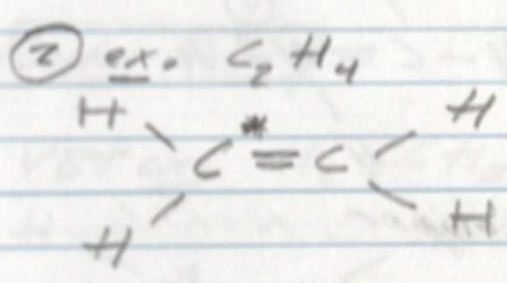 ② ex. C₂H₄
H H
C* = C
H H